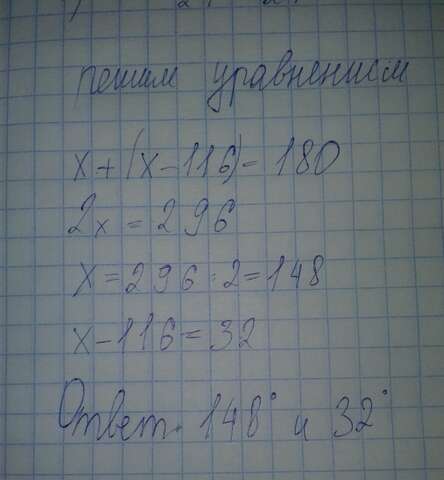 решим уравнением
x+(x-116)=180
2x=296
x=296:2=148
x-116=32
Ответ. 148° и 32°